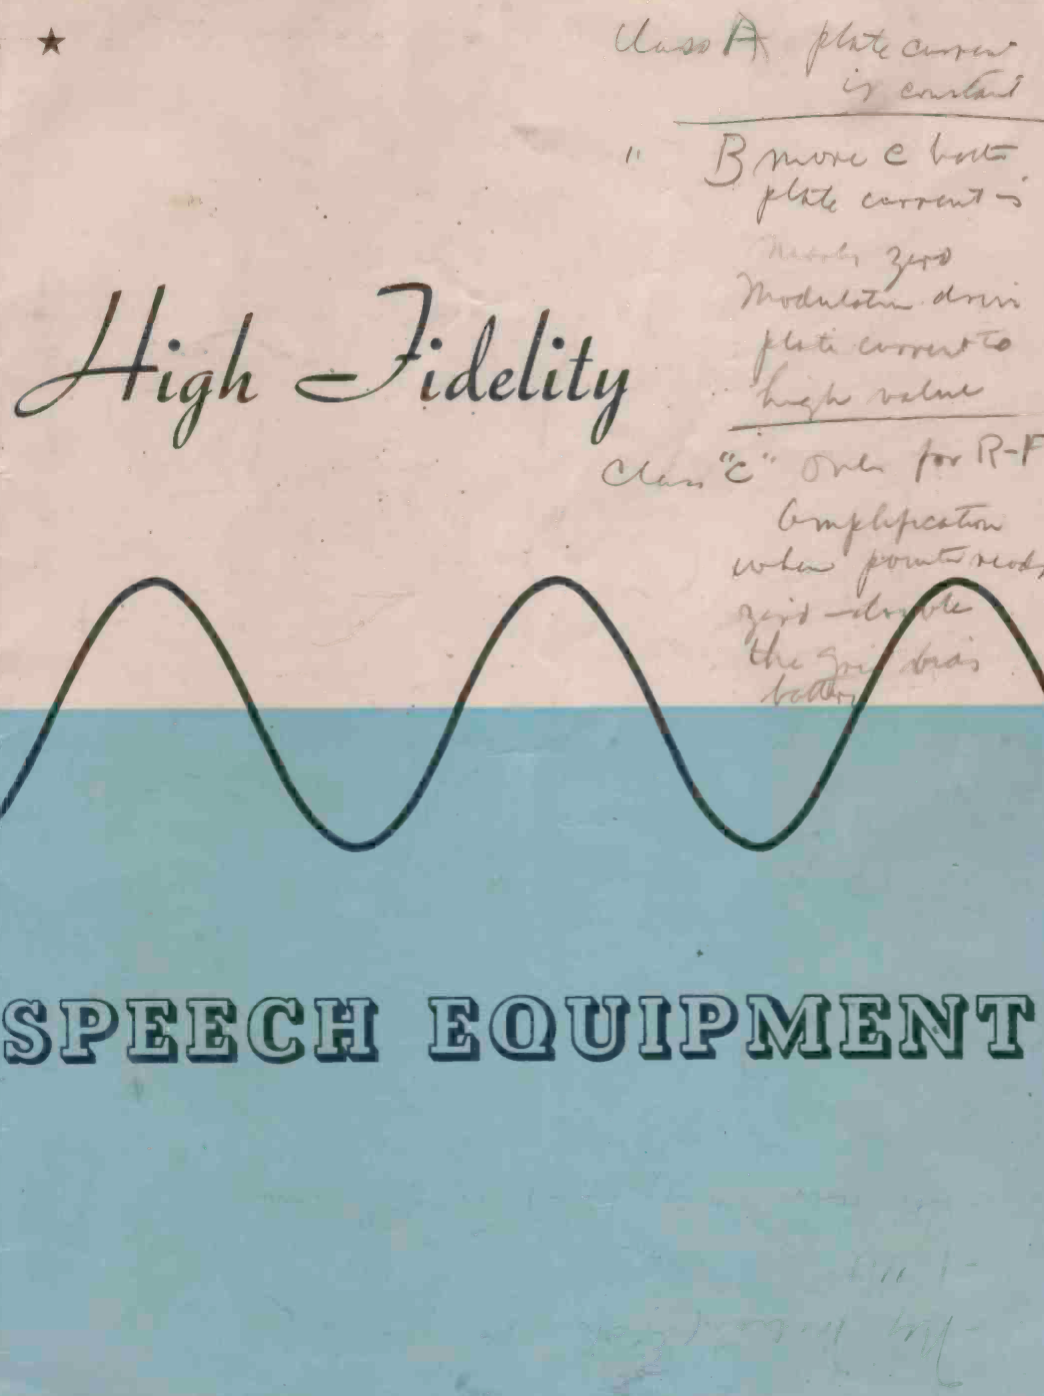 Class A plate current
is constant
" B more C batt
plate current is
nearly zero
Modulation drives
plate current to
high value
High Fidelity
Class "C" only for R-F
Amplification
when point reads
zero - double
the grid bias
battery
SPEECH EQUIPMENT